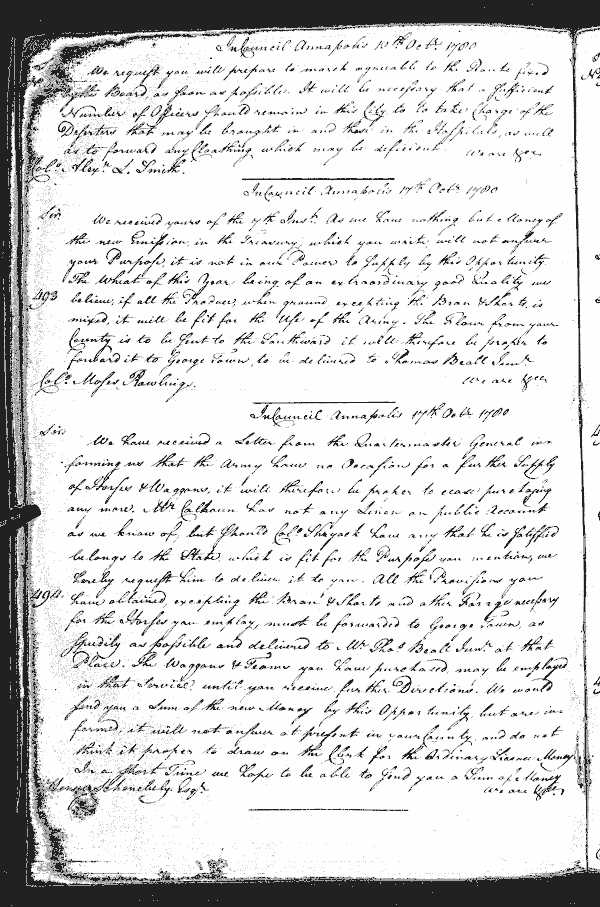 In Council Annapolis 10th Octr. 1780
We request you will prepare to march agreeable to the Route fixed
Board, as soon as possible. It will be necessary that a sufficient
Number of Officers should remain in this City to take Charge of the
Deserters that may be brought in and those in the Hospitals, as well
as to forward any Cloathing which may be deficient. We are &ca
Colo. Alexr. L. Smith.
In Council Annapolis 17th Octr. 1780
Sir
We received yours of the 7th Inst. As we have nothing but Money of
the new Emission, in the Treasury, which you write, will not answer
your Purpose, it is not in our Power to supply by this Opportunity.
The Wheat of this Year being of an extraordinary good Quality we
493
believe, if all the Produce, when ground excepting the Bran & Shorts, is
mixed, it will be fit for the Use of the Army. The Flour from your
County is to be sent to the Southward it will therefore be proper to
forward it to George Town, to be delivered to Thomas Beall Junr.
Colo. Moses Rawlings. We are &ca
In Council Annapolis 17th Octr. 1780
Sir
We have received a Letter from the Quartermaster General in-
forming us that the Army have no Occasion for a further Supply
of Horses & Waggons, it will therefore be proper to cease purchasing
any more. Mr. Calhoun has not any Linen on public Account
as we know of, but should Colo. Shryock have any that he is satisfied
belongs to the State, which is fit for the Purpose you mention, we
hereby request him to deliver it to you. All the Provisions you
494.
have obtained, excepting the Bran & Shorts and other Forage necessary
for the Horses you employ, must be forwarded to George Town, as
speedily as possible and delivered to Mr. Thos. Beall Junr. at that
Place. The Waggons & Teams you have purchased may be employed
in that Service until you receive further Directions. We would
send you a Sum of the new Money by this Opportunity but are in-
formed, it will not answer at present in your County and do not
think it proper to draw on the Clerk for the Ordinary License Money
In a short Time we hope to be able to send you a Sum of Money
Schnebely Esqr. We are &ca